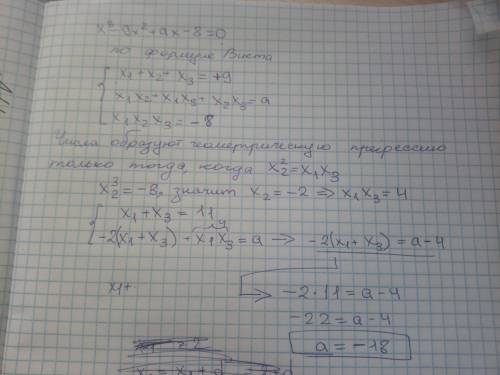 x³-9x²+ax-8=0
по формуле Виета
x₁+x₂+x₃=+9
x₁x₂+x₁x₃+x₂x₃=a
x₁x₂x₃=-8
Числа образуют геометрическую прогрессию
только тогда, когда x₂²=x₁x₃
x₂³=-8, значит x₂=-2 ⇒ x₁x₃=4
x₁+x₃=11
-2(x₁+x₃)+x₁x₃=a → -2(x₁+x₃)=a-4
x₁+
-2·11=a-4
-22=a-4
a=-18